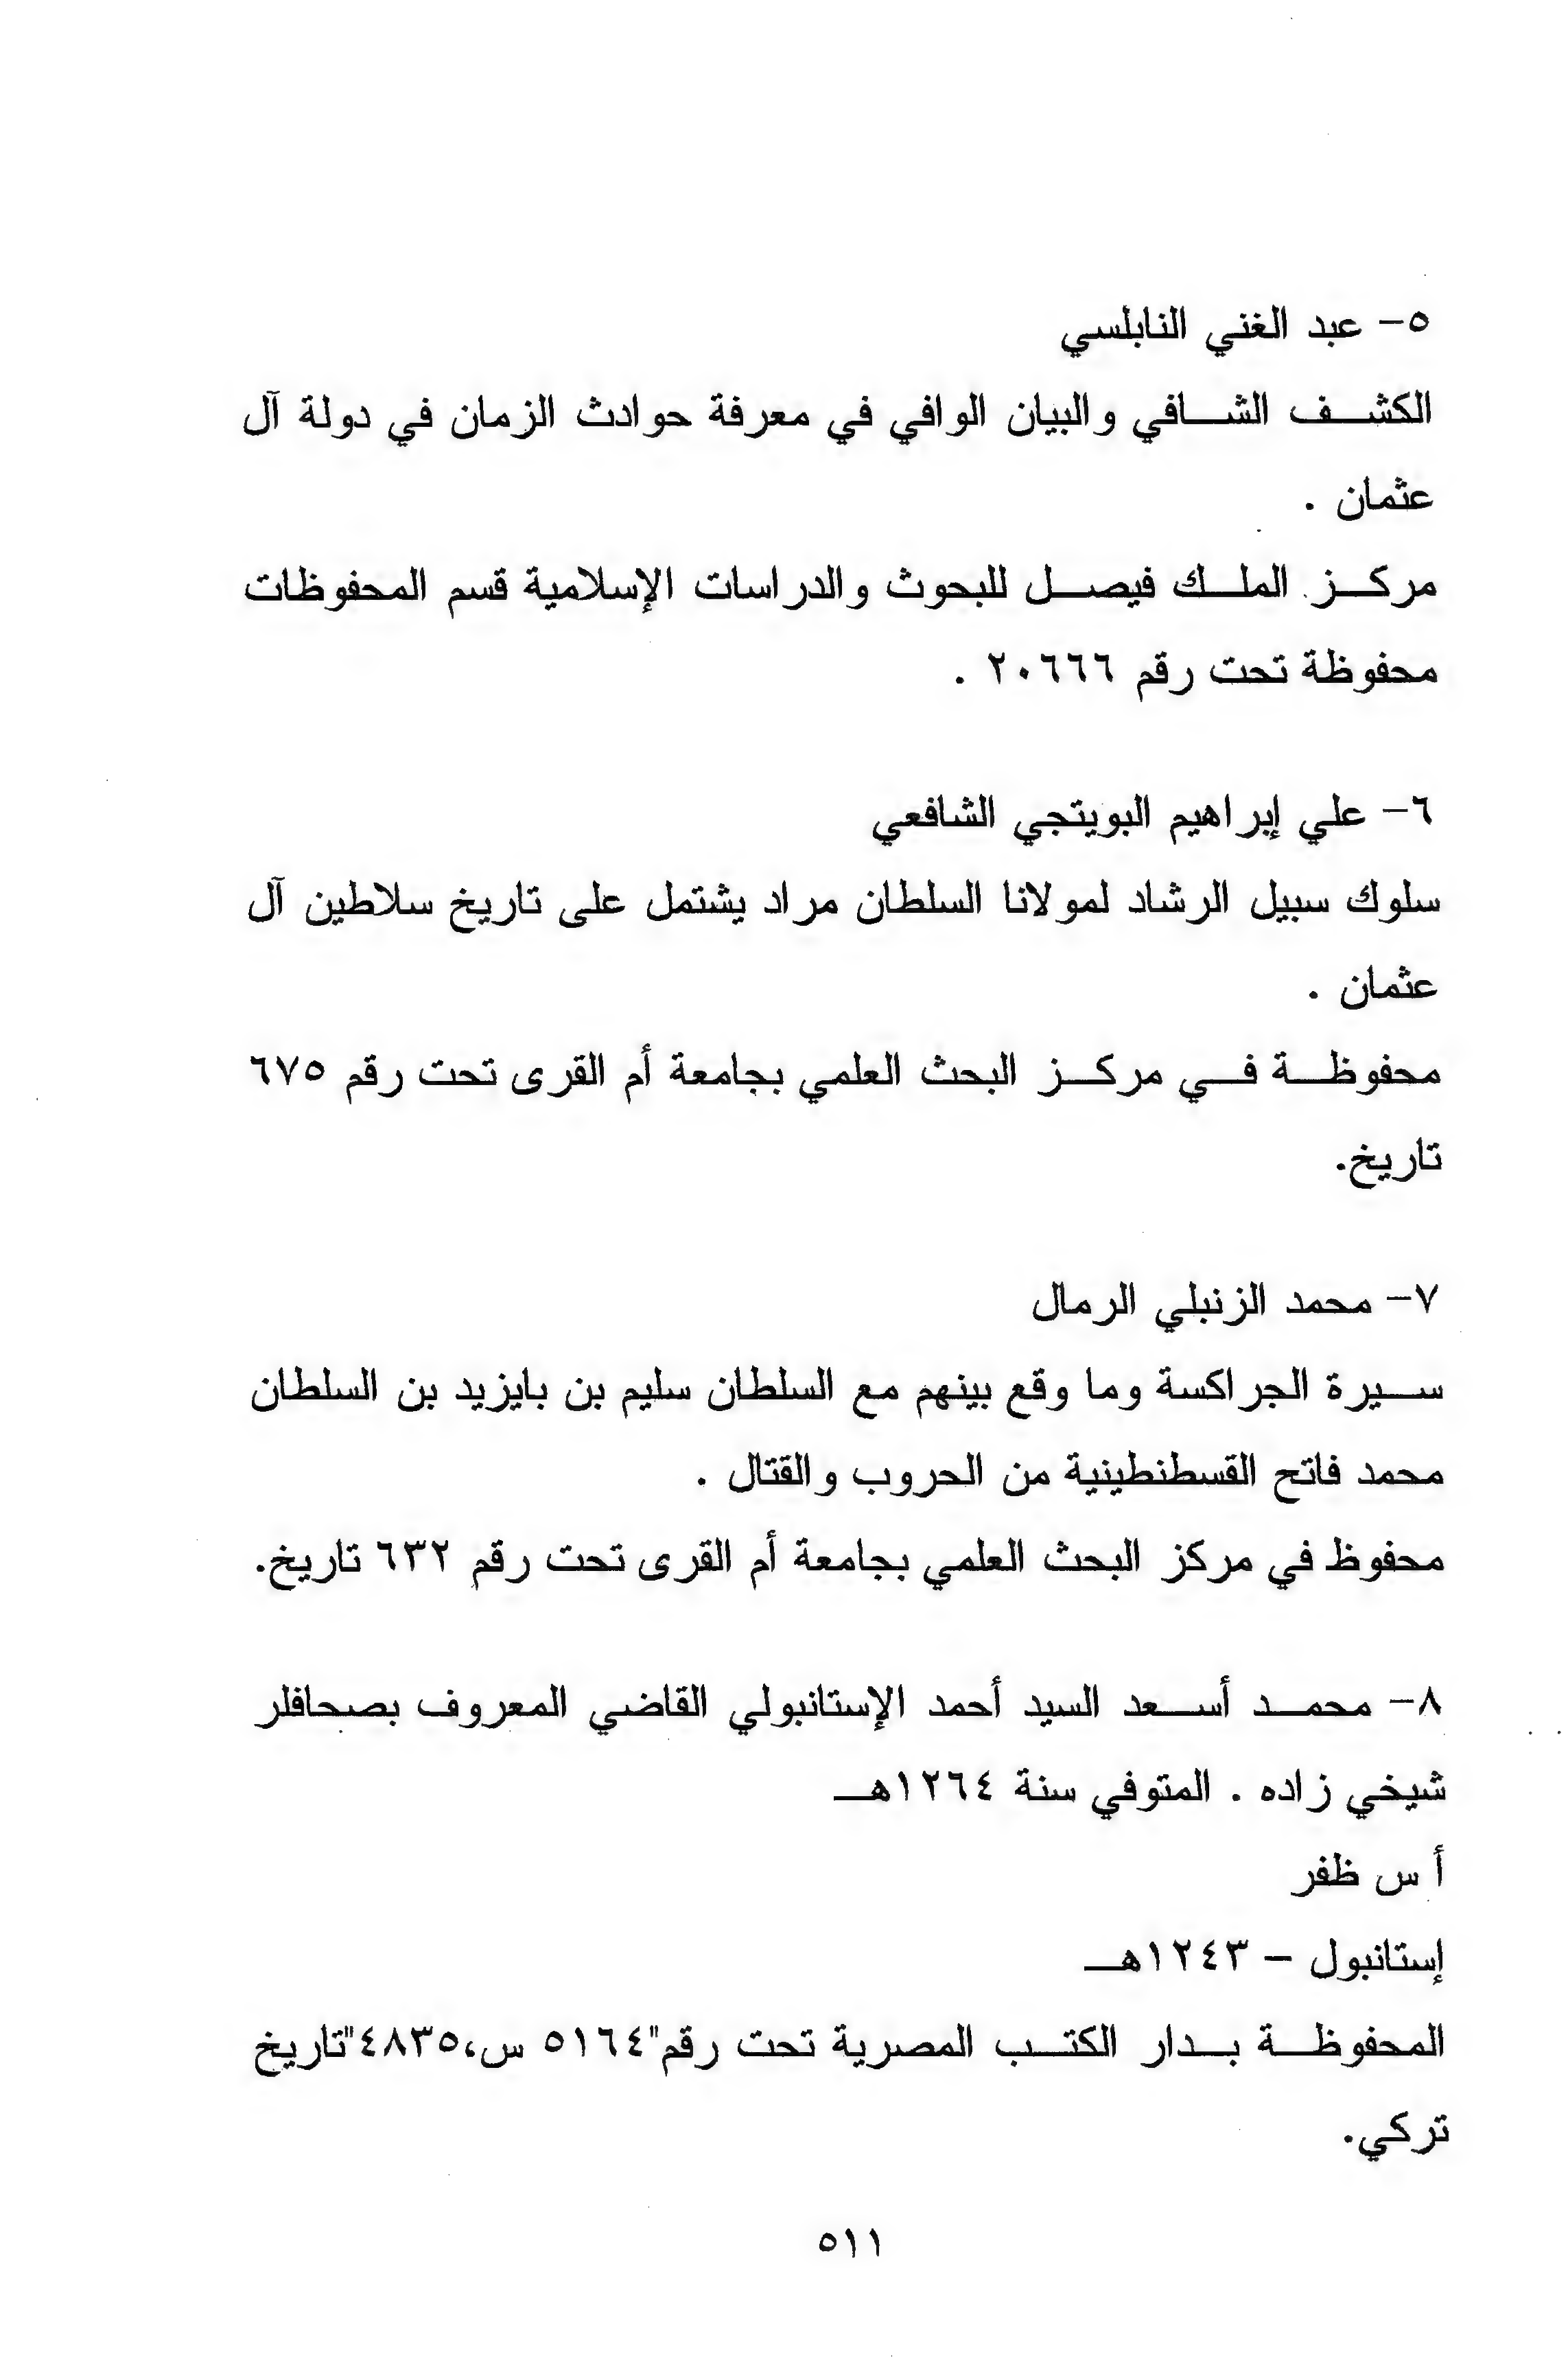 ٥- عبد الغني النابلسي
الكشف الشافي والبيان الوافي في معرفة حوادث الزمان في دولة آل
عثمان .
مركز الملك فيصل للبحوث والدراسات الإسلامية قسم المحفوظات
محفوظة تحت رقم ٢٠٦٦٦ .
٦- علي إبراهيم البويتجي الشافعي
سلوك سبيل الرشاد لمولانا السلطان مراد يشتمل على تاريخ سلاطين آل
عثمان .
محفوظة في مركز البحث العلمي بجامعة أم القرى تحت رقم ٦٧٥
تاريخ.
٧- محمد الزنبلي الرمال
سيرة الجراكسة وما وقع بينهم مع السلطان سليم بن بايزيد بن السلطان
محمد فاتح القسطنطينية من الحروب والقتال .
محفوظ في مركز البحث العلمي بجامعة أم القرى تحت رقم ٦٣٢ تاريخ.
٨- محمد أسعد السيد أحمد الإستانبولي القاضي المعروف بصحافلر
شيخي زاده . المتوفي سنة ١٢٦٤هـ
أ س ظفر
إستانبول - ١٢٤٣هـ
المحفوظة بدار الكتب المصرية تحت رقم"٥١٦٤ س،٤٨٣٥"تاريخ
تركي.
٥١١